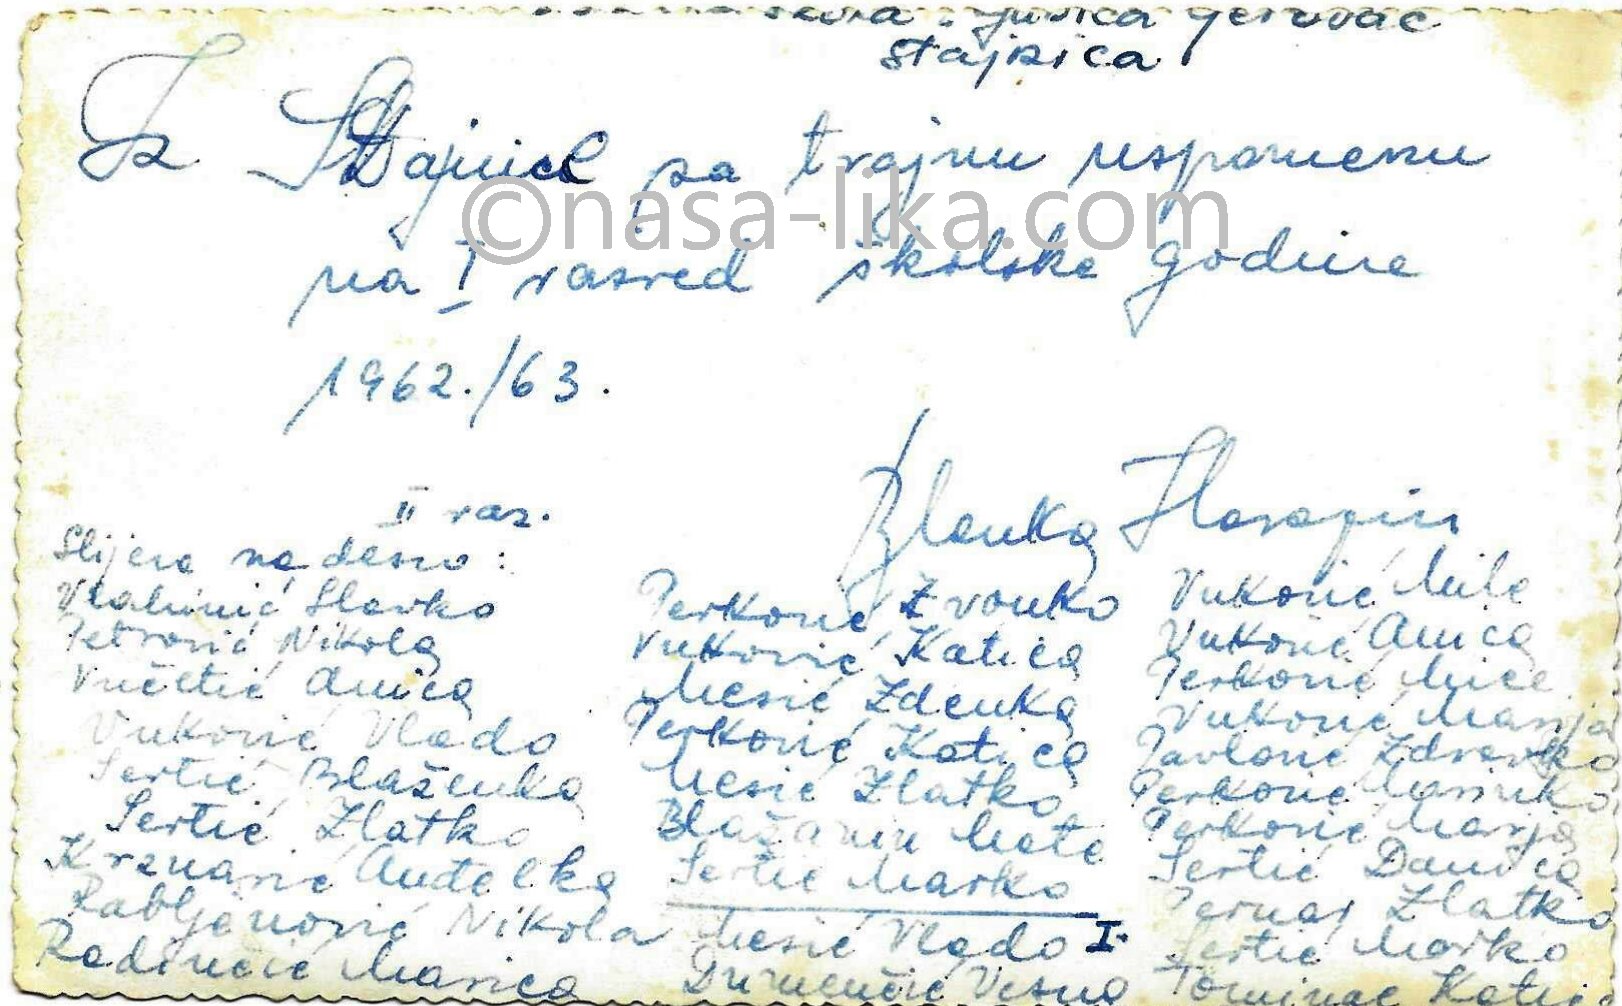 škola Ljubica Jerovac
Stajnica
Iz Stajnice za trajnu uspomenu
©nasa-lika.com
na I razred školske godine
1962./63.
Blanka
II raz.
Slijeva na desno:
Vlahinić Slavko
Petrović Nikola
Vučetić Anica
Vuković Vlado
Sertić Blaženka
Sertić Zlatko
Krznarić Anđelka
Rabljenović Nikola
Radinčić Marica
Perković Zvonko
Vuković Katica
Mesić Zdenka
Perković Katica
Mesić Zlatko
Blažanin Mate
Sertić Marko
Mesić Vlado I.
Dumenčić Vesna
Vuković Mile
Vuković Anica
Perković Mice
Vuković Marija
Pavlović Zdravko
Perković Marinko
Perković Marija
Sertić Danica
Pernar Zlatko
Sertić Marko
Tominac Kati